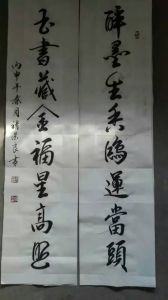 醉墨生香鴻運當頭
玉書藏金福星高照
丙申年春月書